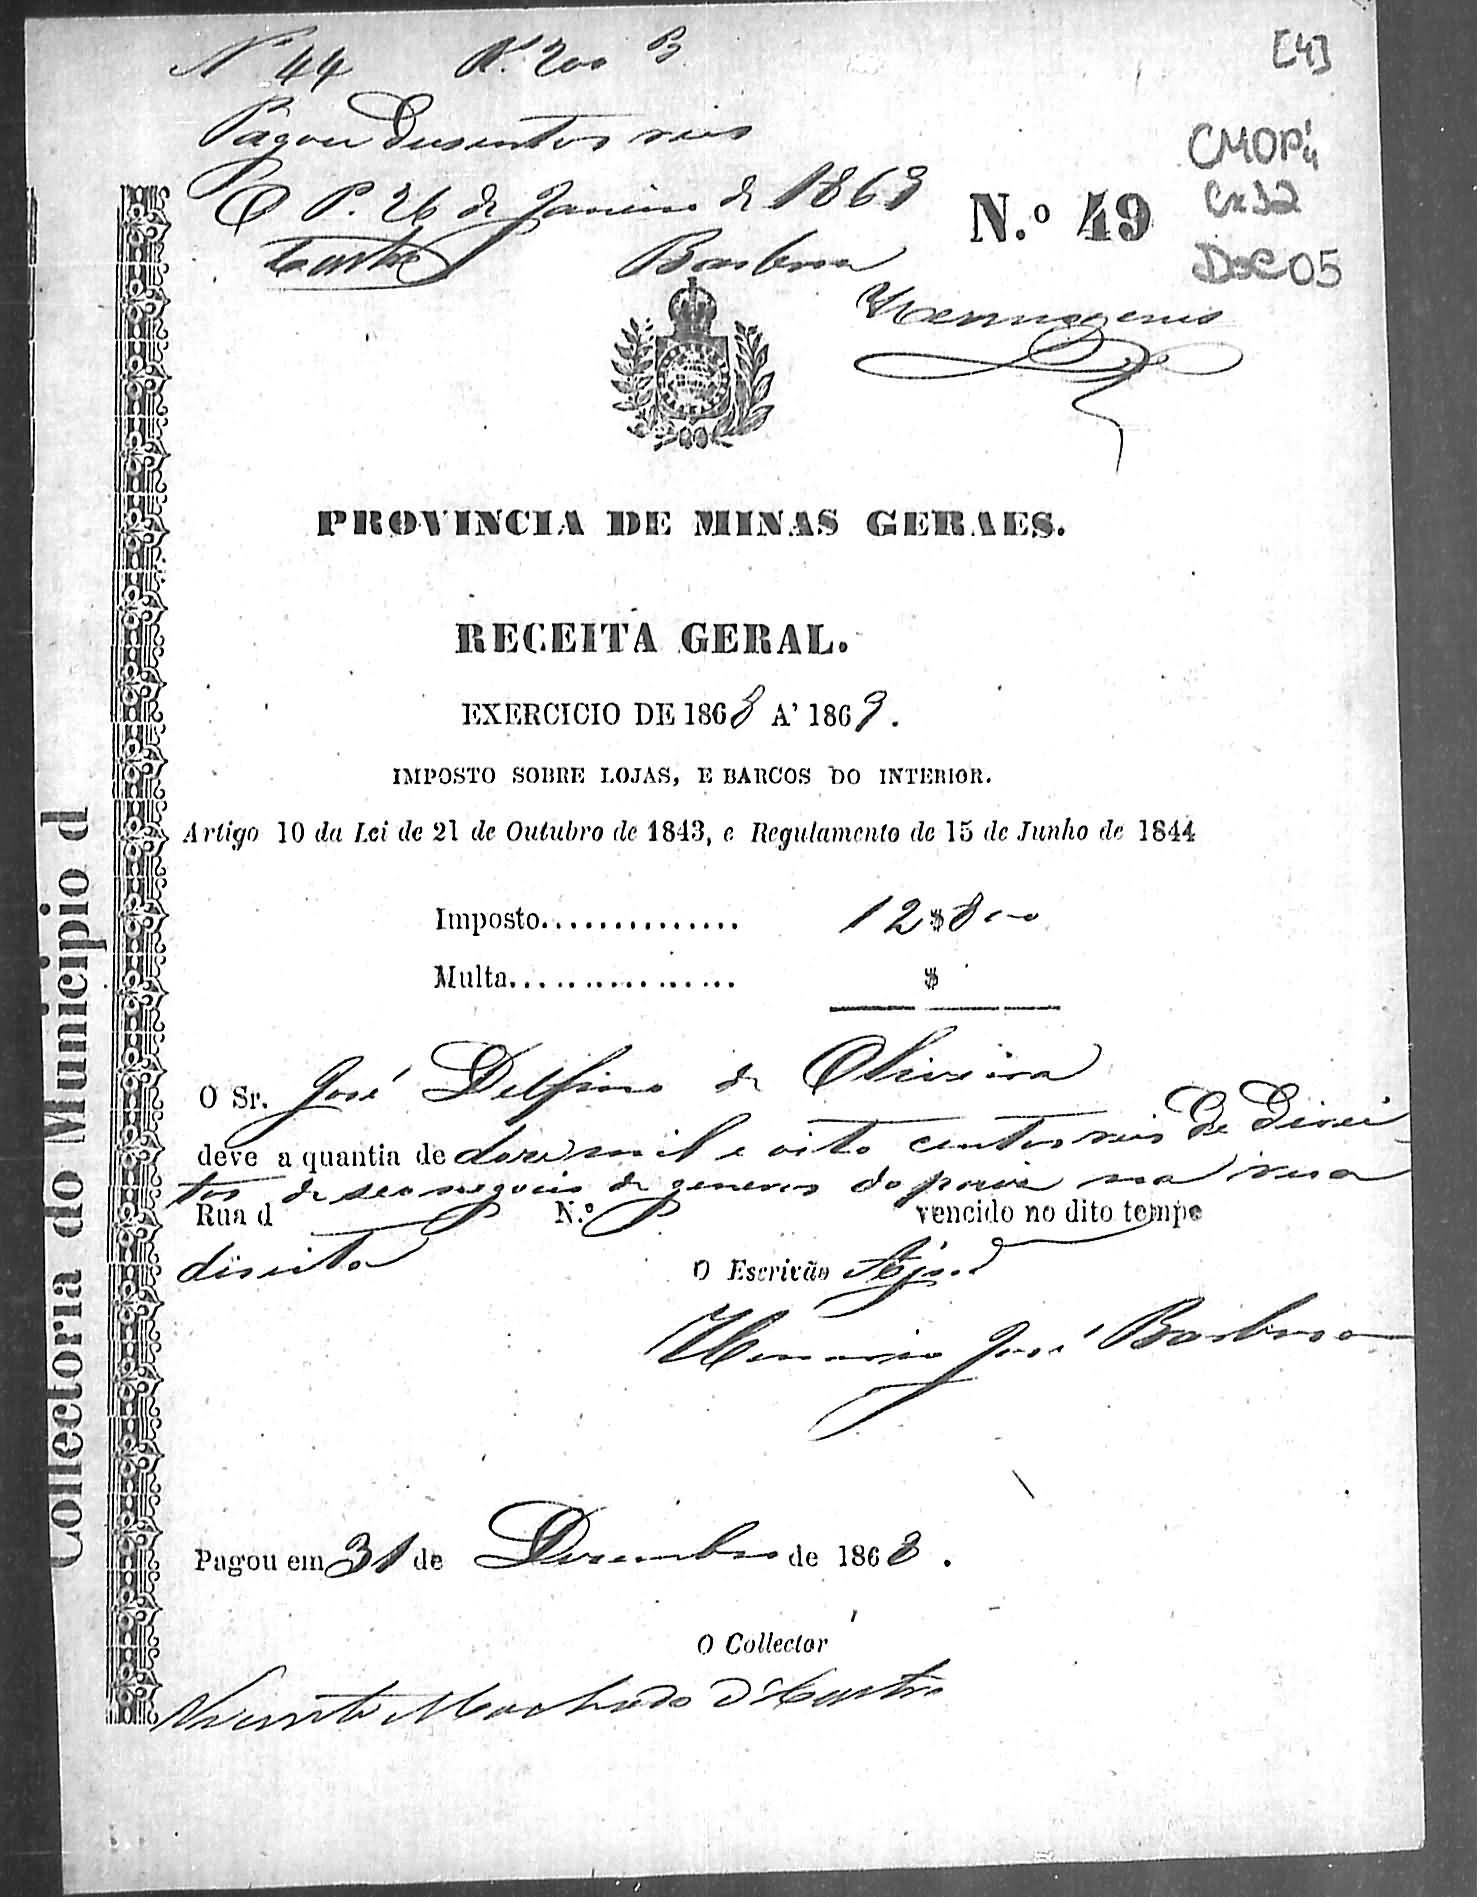 [4]
Nº 44 Rs 200 B
Pagou Dusentos reis
CMOP
Cx 32
DOC 05
O P. 26 de Janeiro de 1869
N.º 49
Castro Barbosa
Hermogenes
PROVINCIA DE MINAS GERAES.
RECEITA GERAL.
EXERCICIO DE 1868 A' 1869.
IMPOSTO SOBRE LOJAS, E BARCOS DO INTERIOR.
Artigo 10 da Lei de 21 de Outubro de 1843, e Regulamento de 15 de Junho de 1844
Imposto............... 12$800
Multa................ $
O Sr. José Delfino de Oliveira
deve a quantia de doze mil e oito centos reis De Direi
tos de seo negocio de generos do paiz na rua
Rua d N.º vencido no dito tempo
direita
O Escrivão
José Barbosa
Pagou em 31 de Dezembro de 1868.
O Collector
Vicente Machado d'Castro
Collectoria do Municipio d